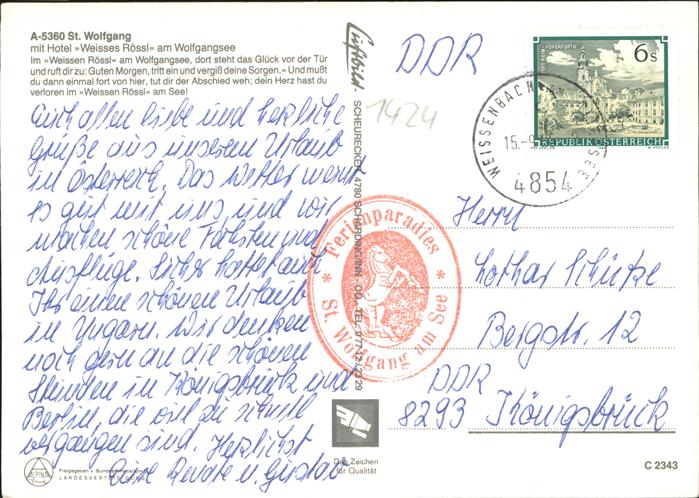 A-5360 St. Wolfgang
mit Hotel »Weisses Rössl« am Wolfgangsee
Im »Weissen Rössl« am Wolfgangsee, dort steht das Glück vor der Tür
und ruft dir zu: Guten Morgen, tritt ein und vergiß deine Sorgen.« Und mußt
du dann einmal fort von hier, tut dir der Abschied weh; dein Herz hast du
verloren im »Weissen Rössl« am See!
Euch allen liebe und herzliche
Grüße aus unserem Urlaub
in Österreich. Das Wetter meint
es gut mit uns, und wir
machen schöne Fahrten und
Ausflüge. Sicher hattet auch
Ihr einen schönen Urlaub
in Ungarn. Wir denken
noch gern an die schönen
Stunden in Königsbrück und
Berlin, die viel zu schnell
vergangen sind. Herzlichst
Eure Renate u. Gustav
ALPINA
Druck
Freigegeben v. Bundesministerium f.
LANDESVERTEIDIGUNG
Luftbild
SCHEURECKER, 4780 SCHÄRDING/INN - OÖ., TEL. 077 12/23 29
1424
* Ferienparadies *
St. Wolfgang am See
Das Zeichen
für Qualität
DDR
STIFT REIN-HOHENFURTH
6 S
REPUBLIK ÖSTERREICH
WEISSENBACH AM ATTERSEE
15.-9.
4854
Herrn
Lothar Schütze
Bergstr. 12
DDR
8293 Königsbrück
C 2343